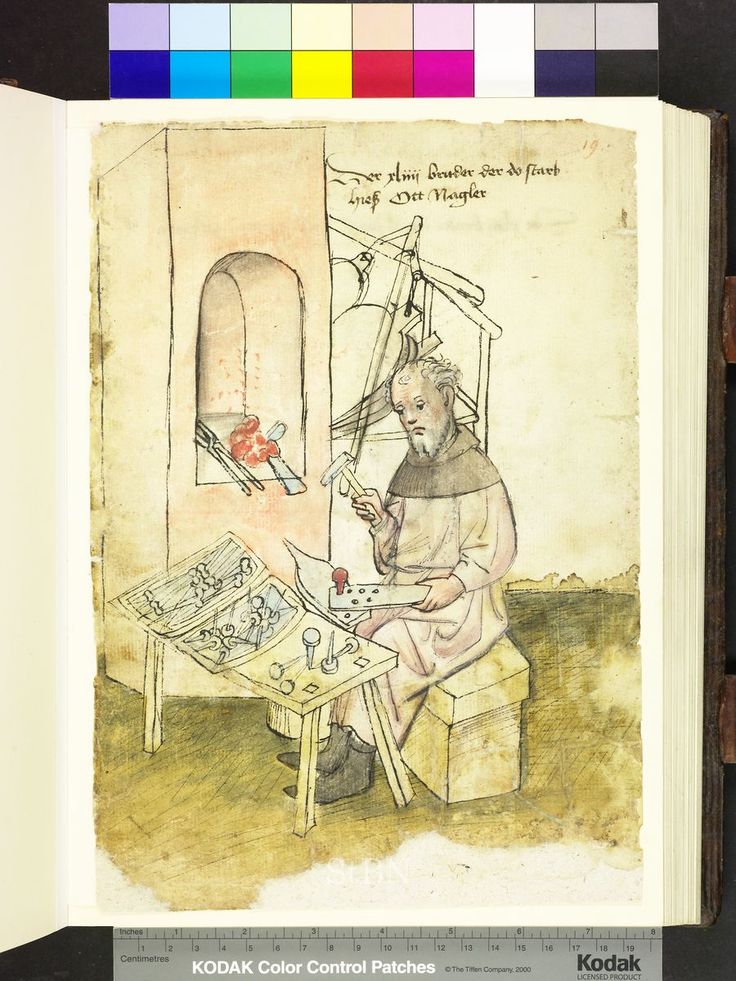 19
Der xliiij bruder der do starb
hieß Ott Nagler
StBN
Inches 1 2 3 4 5 6 7 8
1 2 3 4 5 6 7 8 9 10 11 12 13 14 15 16 17 18 19
Centimetres
KODAK Color Control Patches © The Tiffen Company, 2000 Kodak
LICENSED PRODUCT